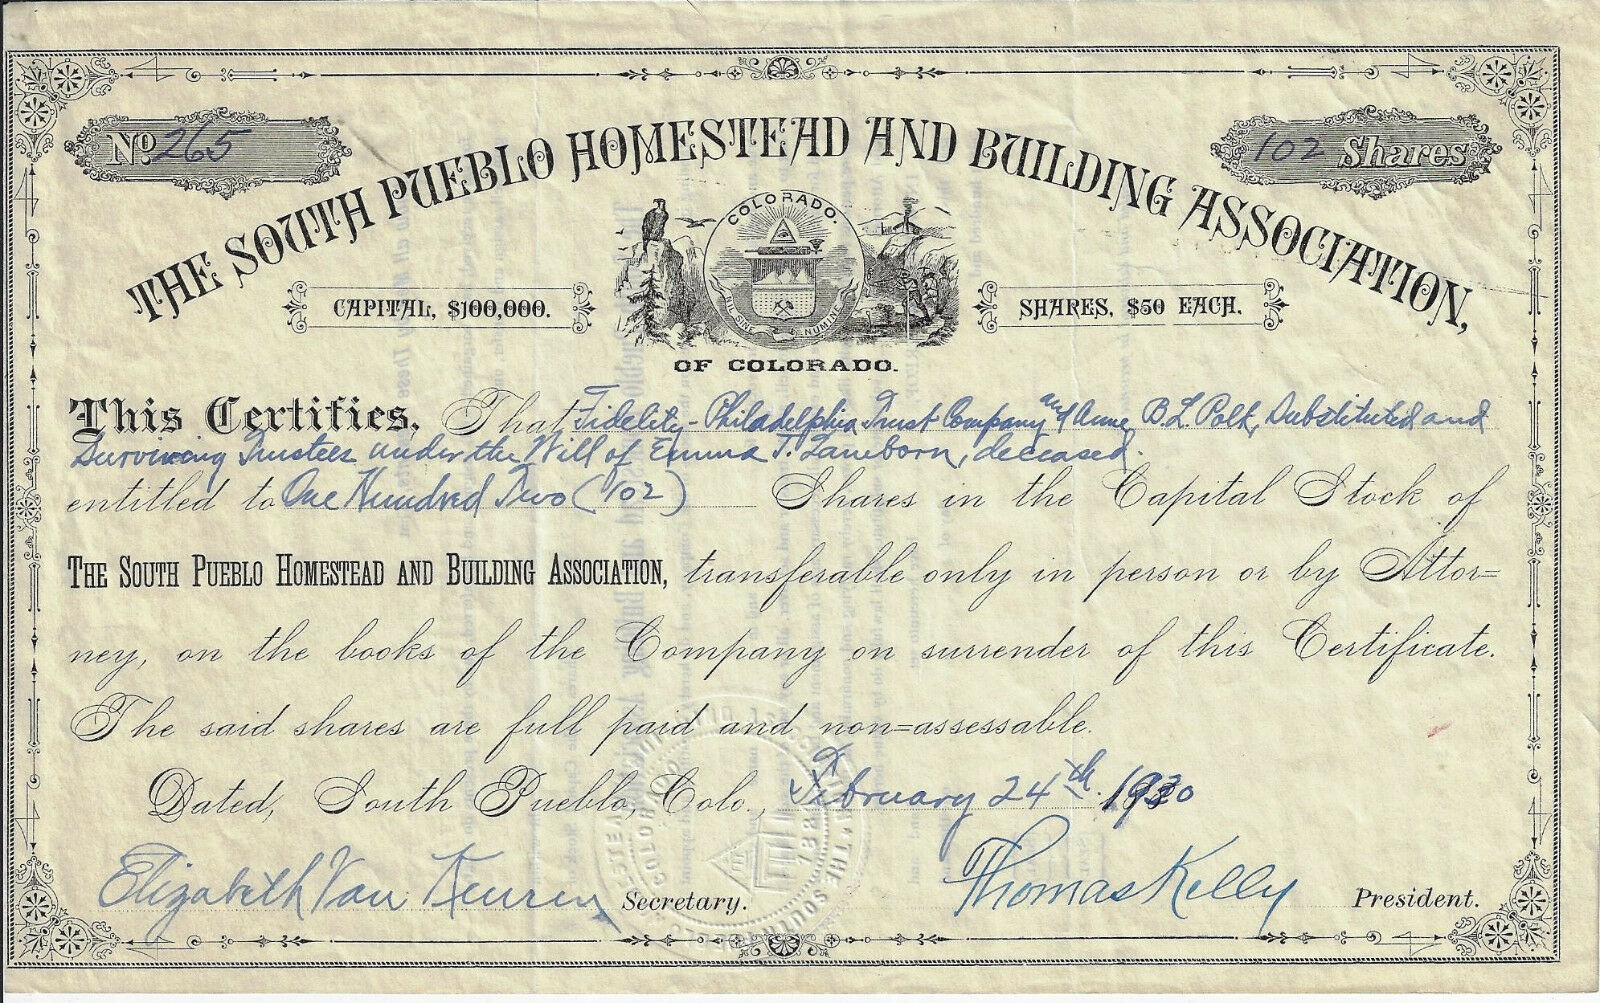 No. 265
102 Shares
THE SOUTH PUEBLO HOMESTEAD AND BUILDING ASSOCIATION,
COLORADO.
NIL SINE NUMINE
CAPITAL, $100,000.
SHARES, $50 EACH.
OF COLORADO.
This Certifies, That Fidelity-Philadelphia Trust Company and Anne B.L. Polk, Substituted and
Surviving Trustees under the Will of Emma T. Lamborn, deceased.
entitled to One Hundred Two (102) Shares in the Capital Stock of
THE SOUTH PUEBLO HOMESTEAD AND BUILDING ASSOCIATION, transferable only in person or by Attor=
ney, on the books of the Company on surrender of this Certificate.
The said shares are full paid and non=assessable.
Dated, South Pueblo, Colo., February 24th. 1930
Elizabeth Van Keuren Secretary.
Thomas Kelly President.